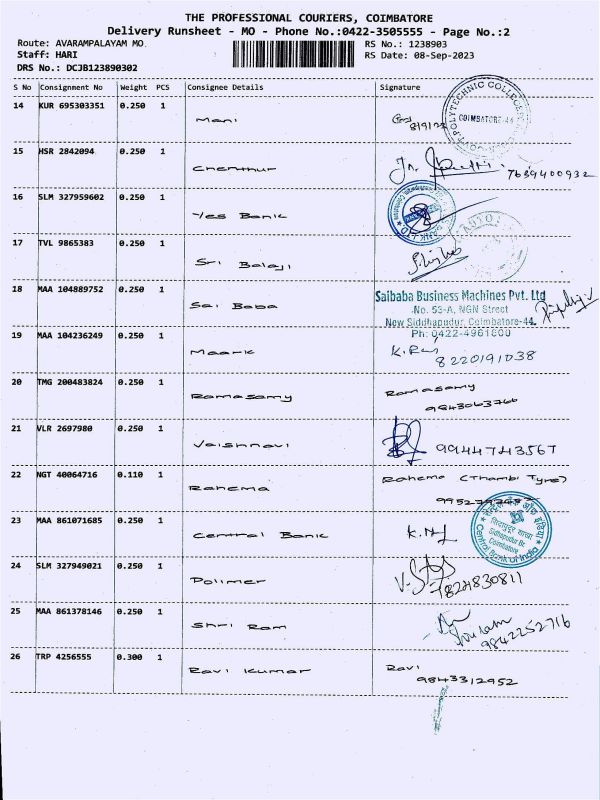 THE PROFESSIONAL COURIERS, COIMBATORE
Delivery Runsheet - MO - Phone No.:0422-3505555 - Page No.:2
Route: AVARAMPALAYAM MO. RS No.: 1238903
Staff: HARI RS Date: 08-Sep-2023
DRS No.: DCJB123890302
S No Consignment No Weight PCS Consignee Details Signature
14 KUR 695303351 0.250 1 Mani
POLYTECHNIC COLLEGE
COIMBATORE-44
15 HSR 2842094 0.250 1 Chenthur 7639400932
16 SLM 327959602 0.250 1 Yes Bank
17 TVL 9865383 0.250 1 Sri Balaji
18 MAA 104889752 0.250 1 Sai Baba
Saibaba Business Machines Pvt. Ltd
No. 53-A, NGN Street
New Siddhapudur, Coimbatore-44.
Ph: 0422-4961600
19 MAA 104236249 0.250 1 Maark 8220191038
20 TMG 200483824 0.250 1 Ramasamy Ramasamy
9843063766
21 VLR 2697980 0.250 1 Vaishnavi 9944743567
22 NGT 40064716 0.110 1 Rahema Rahema (Thambi Tyre)
23 MAA 861071685 0.250 1 Central Bank
Sidhapudur Br.
Coimbatore
Central Bank of India
24 SLM 327949021 0.250 1 Polimer 7824830811
25 MAA 861378146 0.250 1 Shri Ram
9842252716
26 TRP 4256555 0.300 1 Ravi Kumar Ravi
9843312952